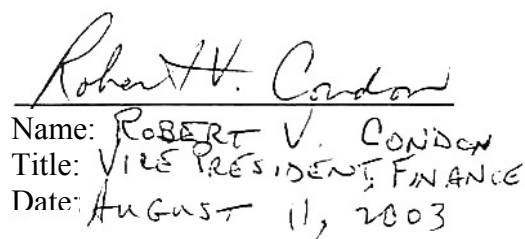 Robert V. Condon
Name: ROBERT V. CONDON
Title: VICE PRESIDENT, FINANCE
Date: AUGUST 11, 2003